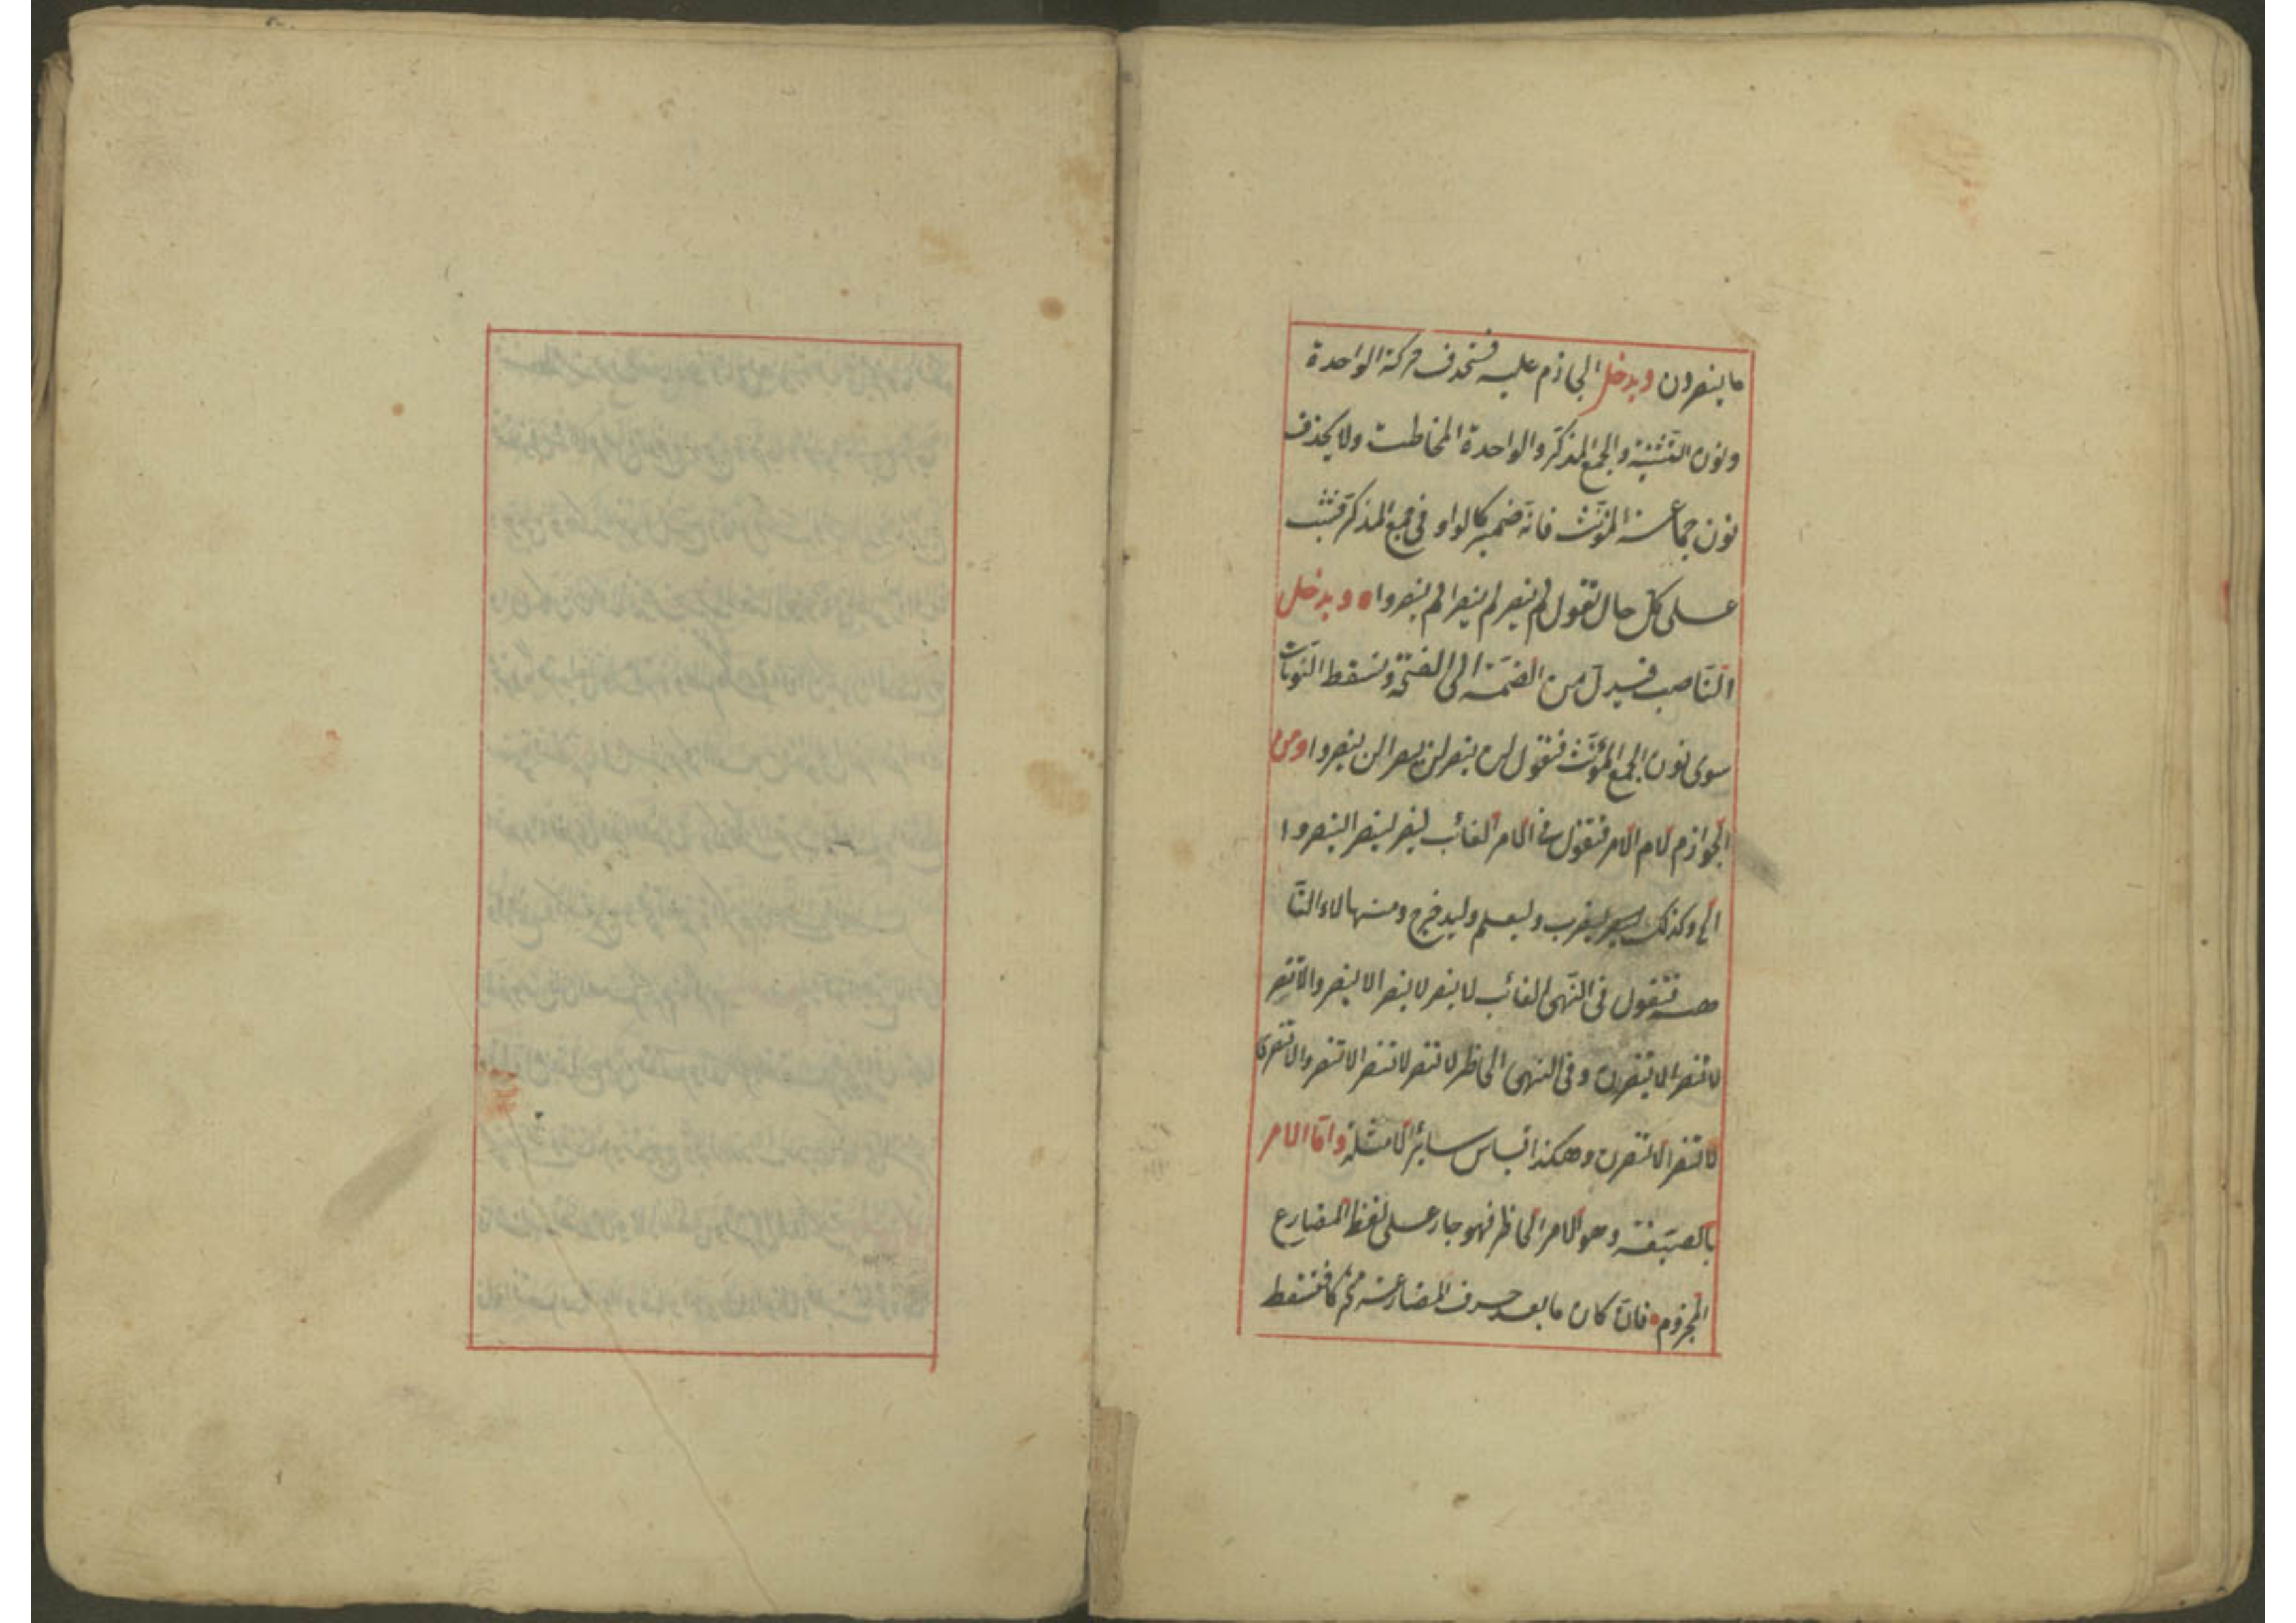 ما ينصرون ويدخل الجازم عليه فتحذف حركة الواحدة
ونون التثنية والجمع المذكر والواحدة المخاطبت ولا يحذف
نون جماعة المؤنث فانه ضمير كالواو في جمع المذكر فتثبت
على كل حال تقول لم ينصر لم ينصرا لم ينصروا ويدخل
الناصب فيبدل من الضمة الى الفتحة وتسقط النونات
سوى نون الجمع المؤنث فتقول لن ينصر لن ينصرا لن ينصروا ومن
الجوازم لام الامر فتقول في الامر الغائب لينصر لينصرا لينصروا
الخ وكذلك ليضرب وليعلم وليدخرج ومنها لاء النا
هيه فتقول في النهى الغائب لا ينصر لا ينصرا لا ينصروا لا تنصر
لا تنصرا لا ينصرن وفي النهى الحاظر لا تنصر لا تنصرا لا تنصروا لا تنصرى
لا تنصرا لا تنصرن وهكذا قياس سائر الامثلة واما الامر
بالصيغة وهو الامر الحاظر فهو جار على لفظ المضارع
المجزوم فان كان ما بعد حرف المضارعة محركا فتسقط